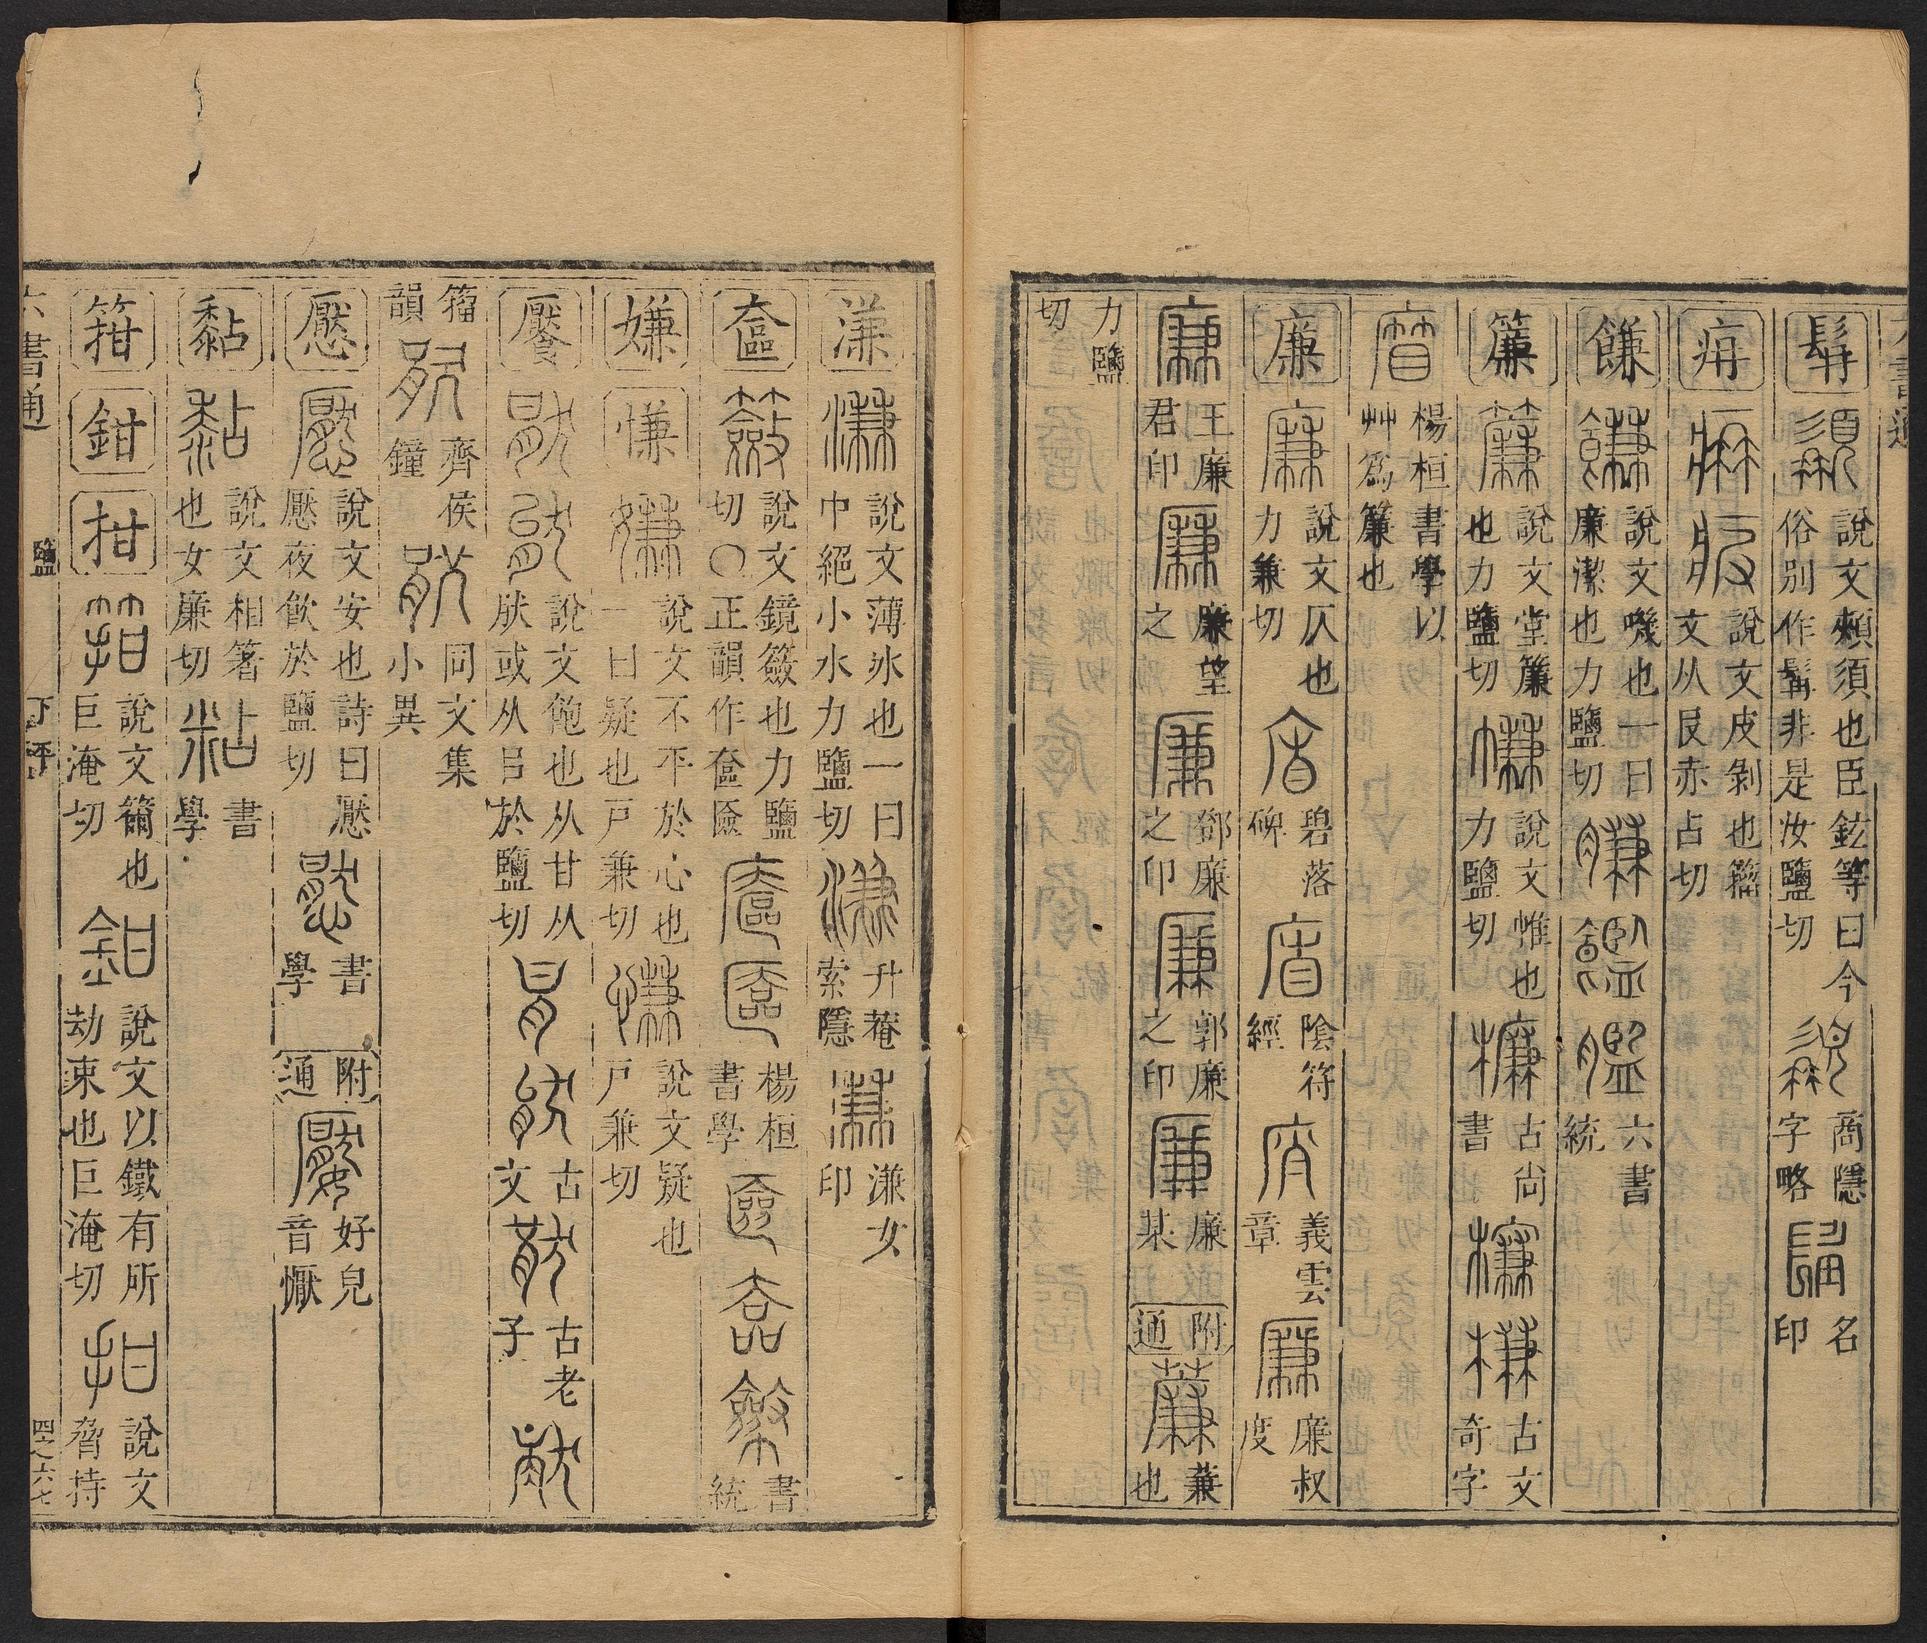 六書通
髯 說文頰須也臣鉉等曰今俗別作髯非是汝鹽切 商隱字略 名印
痈 說文皮剝也籀文从𠬝赤占切
饝 說文嘰也一曰廉潔也力鹽切 六書統
簾 說文堂簾也力鹽切 說文帷也力鹽切 古尚書 古文奇字
楊桓書學以艸爲簾也
廉 說文仄也力兼切 碧落碑 陰符經 義雲章 廉叔度
王廉君印 廉望之 鄧廉之印 郭廉之印 廉某 附通 蒹也
力鹽切
溓 說文薄氷也一曰中絕小水力鹽切 升菴索隱 溓女印
奩 說文鏡籢也力鹽切〇正韻作奩匳 楊桓書學 書統
嫌 慊 說文不平於心也一曰疑也戸兼切 說文疑也戸兼切
饜 說文飽也从甘从肰或从㠯於鹽切 古文 古老子
籀韻 齊侯鐘 同文集小異
懕 說文安也詩曰懕懕夜飲於鹽切 書學 附通 好皃音懨
黏 說文相箸也女廉切 書學
箝 鉗 拑 說文籋也巨淹切 說文以鐵有所劫束也巨淹切 說文脅持
六書通 鹽 下平 四之六七